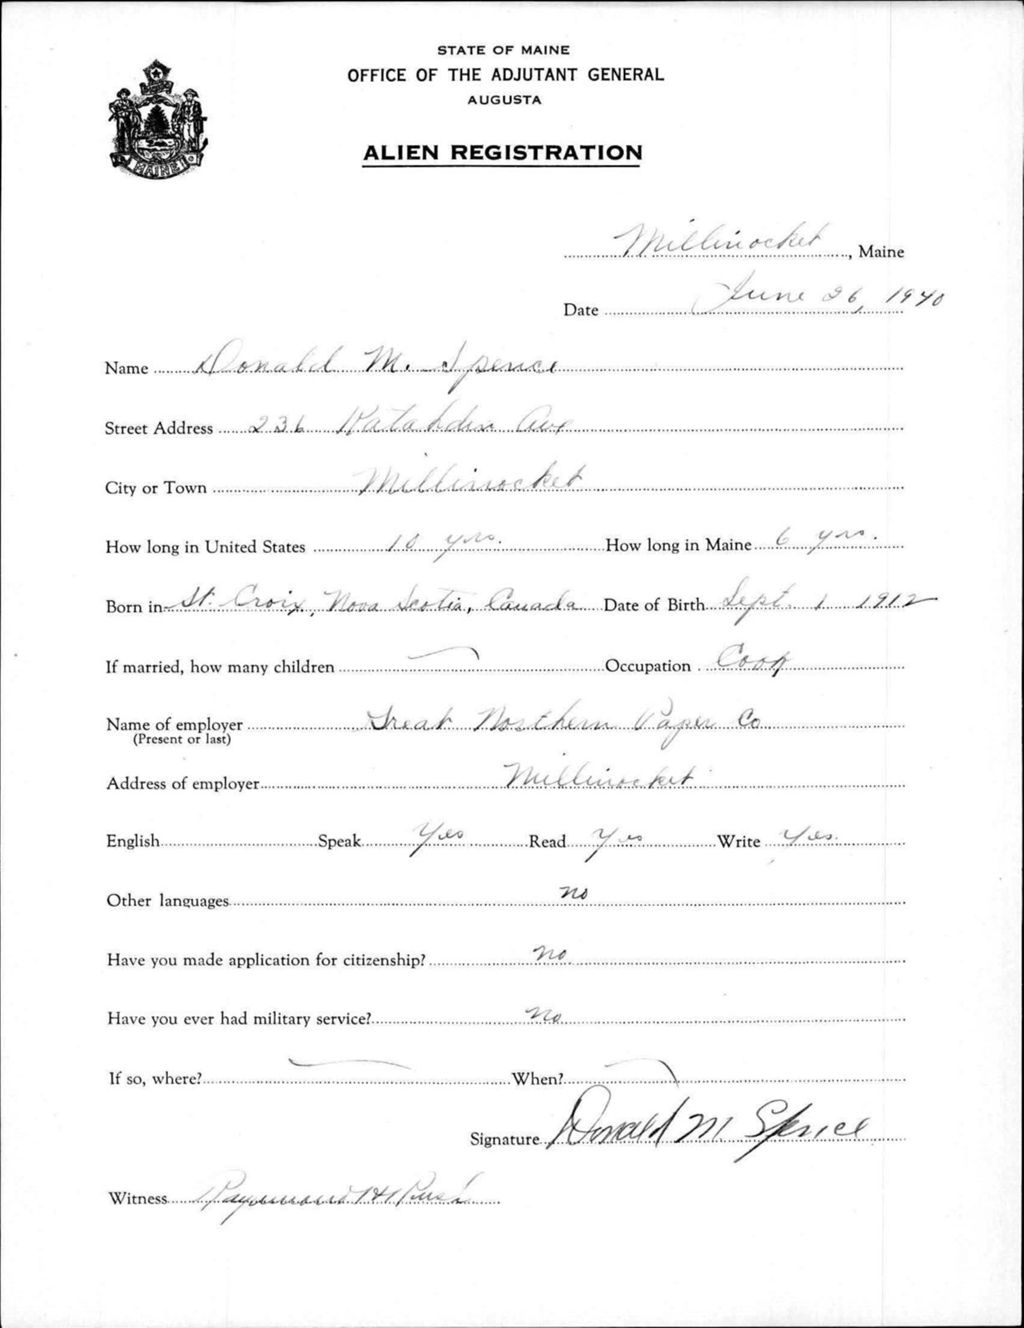 STATE OF MAINE
OFFICE OF THE ADJUTANT GENERAL
AUGUSTA
ALIEN REGISTRATION
MAINE
Millinocket, Maine
Date June 26, 1940
Name Donald M. Spence
Street Address 236 Katahdin Ave
City or Town Millinocket
How long in United States 10 yrs. How long in Maine 6 yrs.
Born in St. Croix, Nova Scotia, Canada Date of Birth Sept. 1 1912
If married, how many children Occupation Cook
Name of employer Great Northern Paper Co
(Present or last)
Address of employer Millinocket
English Speak Yes Read Yes Write Yes.
Other languages no
Have you made application for citizenship? no
Have you ever had military service? no
If so, where? When?
Signature Donald M Spence
Witness Raymond H Rush